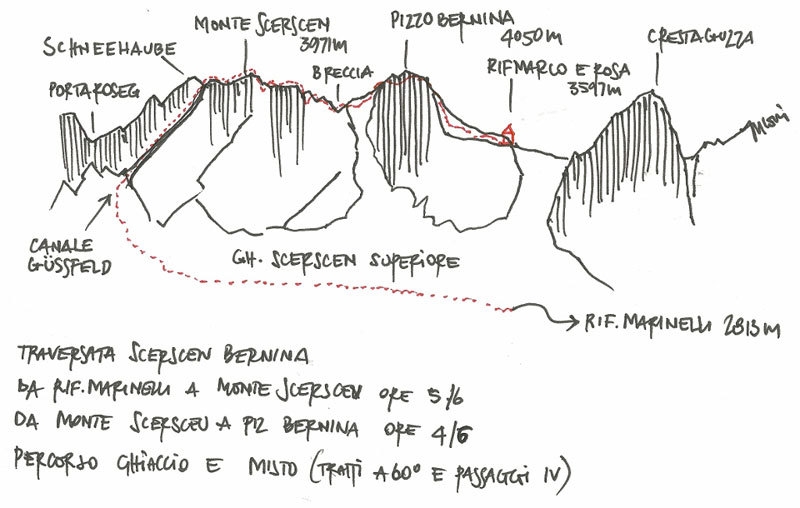 MONTE SCERSCEN
3971M
PIZZO BERNINA
4050M
CRESTAGUZZA
SCHNEEHAUBE
BRECCIA
RIF MARCO E ROSA
3597M
PORTA ROSEG
CANALE
GÜSSFELD
GH. SCERSCEN SUPERIORE
RIF. MARINELLI 2813M
TRAVERSATA SCERSCEN BERNINA
DA RIF. MARINELLI A MONTE SCERSCEN ORE 5/6
DA MONTE SCERSCEN A PIZ BERNINA ORE 4/6
PERCORSO GHIACCIO E MISTO (TRATTI A 60° E PASSAGGI IV)